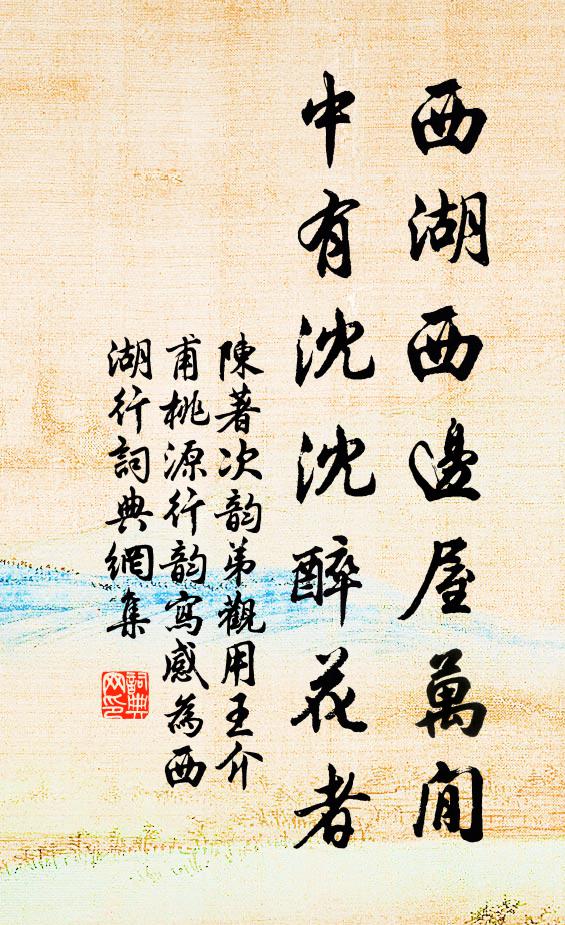 西湖西邊屋萬間
中有沈沈醉花者
陳著次韵弟觀用王介
甫桃源行韵寫感為西
湖行詞典網集
詞典網印